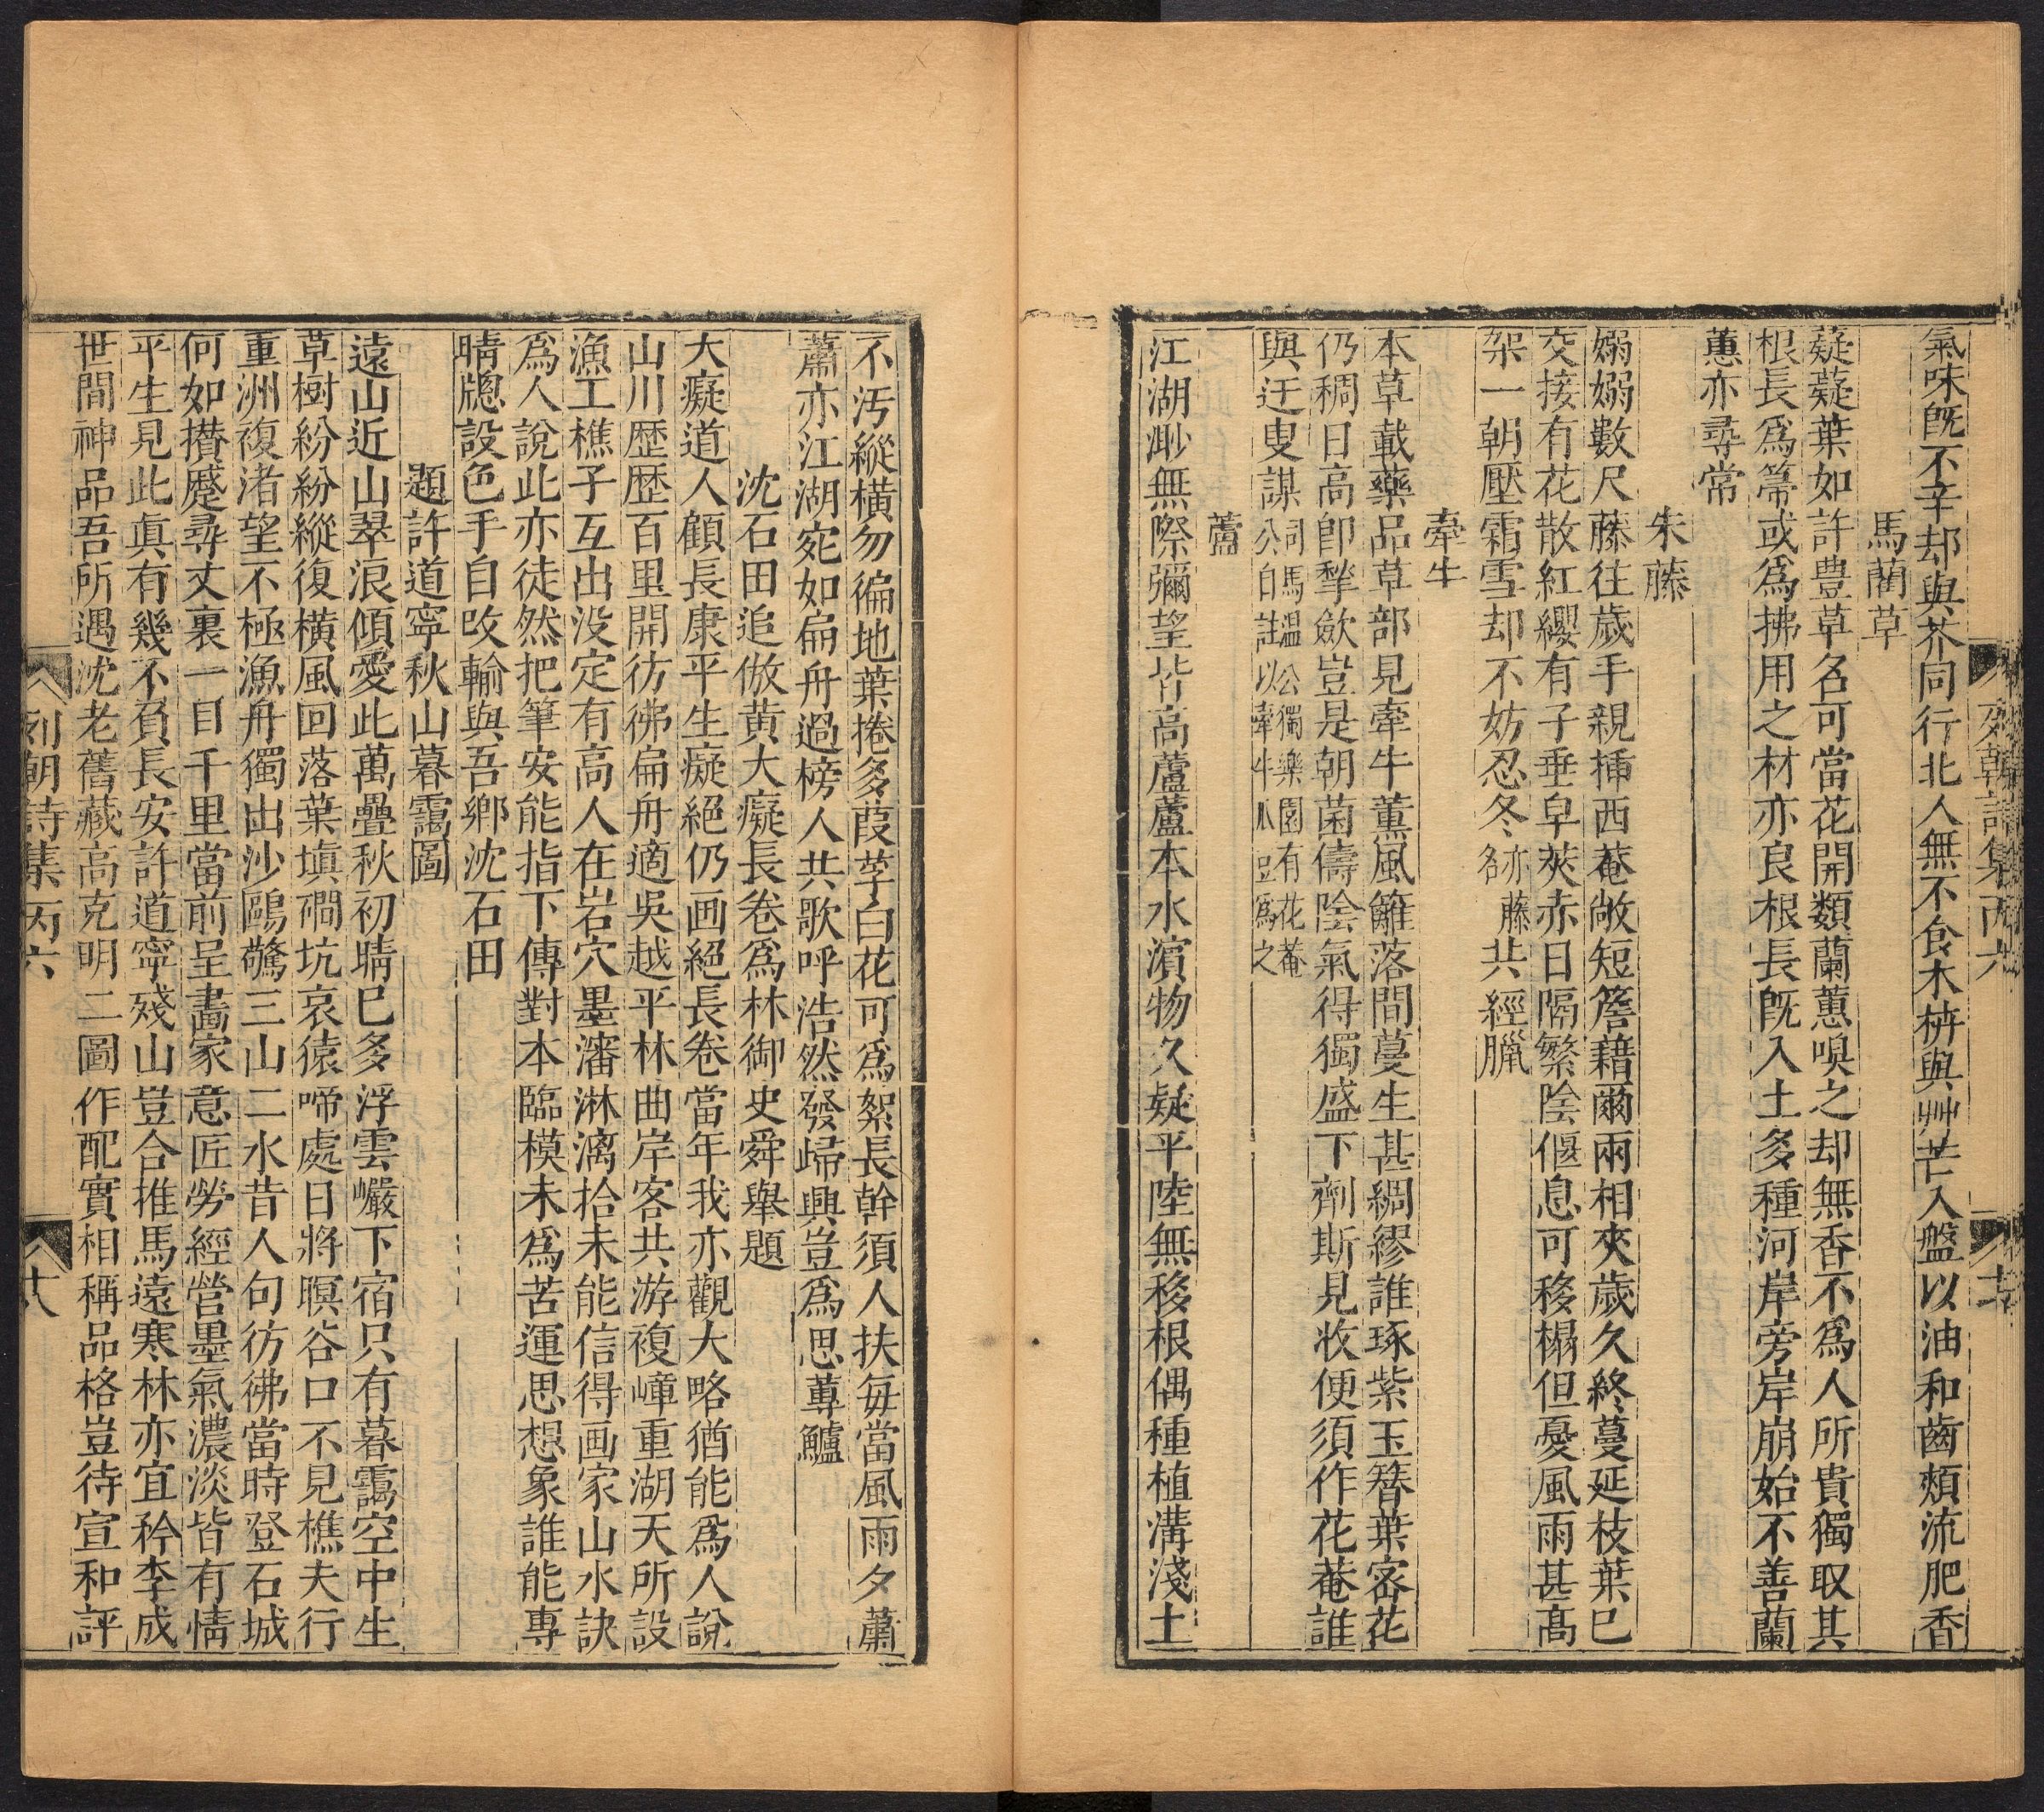 氣味既不辛却與芥同行北人無不食木枿與艸芒入盤以油和齒頰流肥香
馬藺草
薿薿葉如許豊草名可當花開類蘭蕙嗅之却無香不為人所貴獨取其
根長爲箒或爲拂用之材亦良根長既入土多種河岸旁岸崩始不善蘭
蕙亦尋常
朱藤
嫋嫋數尺藤往歲手親揷西菴敞短簷藉爾兩相夾歲久終蔓延枝葉已
交接有花散紅纓有子垂皁莢赤日隔繁陰偃息可移榻但憂風雨甚高
架一朝壓霜雪却不妨忍冬亦藤名共經臘
牽牛
本草載藥品草部見牽牛薰風籬落間蔓生甚綢繆誰琢紫玉簪葉密花
仍稠日高卽揫歛豈是朝菌儔陰氣得獨盛下劑斯見收便須作花菴誰
與迂叟謀司馬溫公獨樂園有花菴公自註以牽牛瓜豆爲之
蘆
江湖渺無際彌望皆高蘆蘆本水濱物久疑平陸無移根偶種植溝淺土
不汚縱橫勿徧地葉捲多葭莩白花可爲絮長幹須人扶每當風雨夕蕭
蕭亦江湖宛如扁舟過榜人共歌呼浩然發歸興豈爲思蓴鱸
沈石田追倣黄大癡長卷爲林御史舜舉題
大癡道人顧長康平生癡絕仍画絕長卷當年我亦觀大略猶能爲人說
山川歷歷百里開彷彿扁舟適吳越平林曲岸客共游複嶂重湖天所設
漁工樵子互出没定有高人在岩穴墨瀋淋漓拾未能信得画家山水訣
爲人說此亦徒然把筆安能指下傳對本臨模未爲苦運思想象誰能專
晴牕設色手自改輸與吾鄉沈石田
題許道寧秋山暮靄圖
遠山近山翠浪傾愛此萬疊秋初晴巳多浮雲巖下宿只有暮靄空中生
草樹紛紛縱復橫風回落葉塡礀坑哀猿啼處日將暝谷口不見樵夫行
重洲複渚望不極漁舟獨出沙鷗驚三山二水昔人句彷彿當時登石城
何如攢蹙尋丈裏一目千里當前呈畵家意匠勞經營墨氣濃淡皆有情
平生見此眞有幾不負長安許道寧殘山豈合推馬遠寒林亦宜矜李成
世間神品吾所遇沈老舊藏高克明二圖作配實相稱品格豈待宣和評
列朝詩集丙六
十八